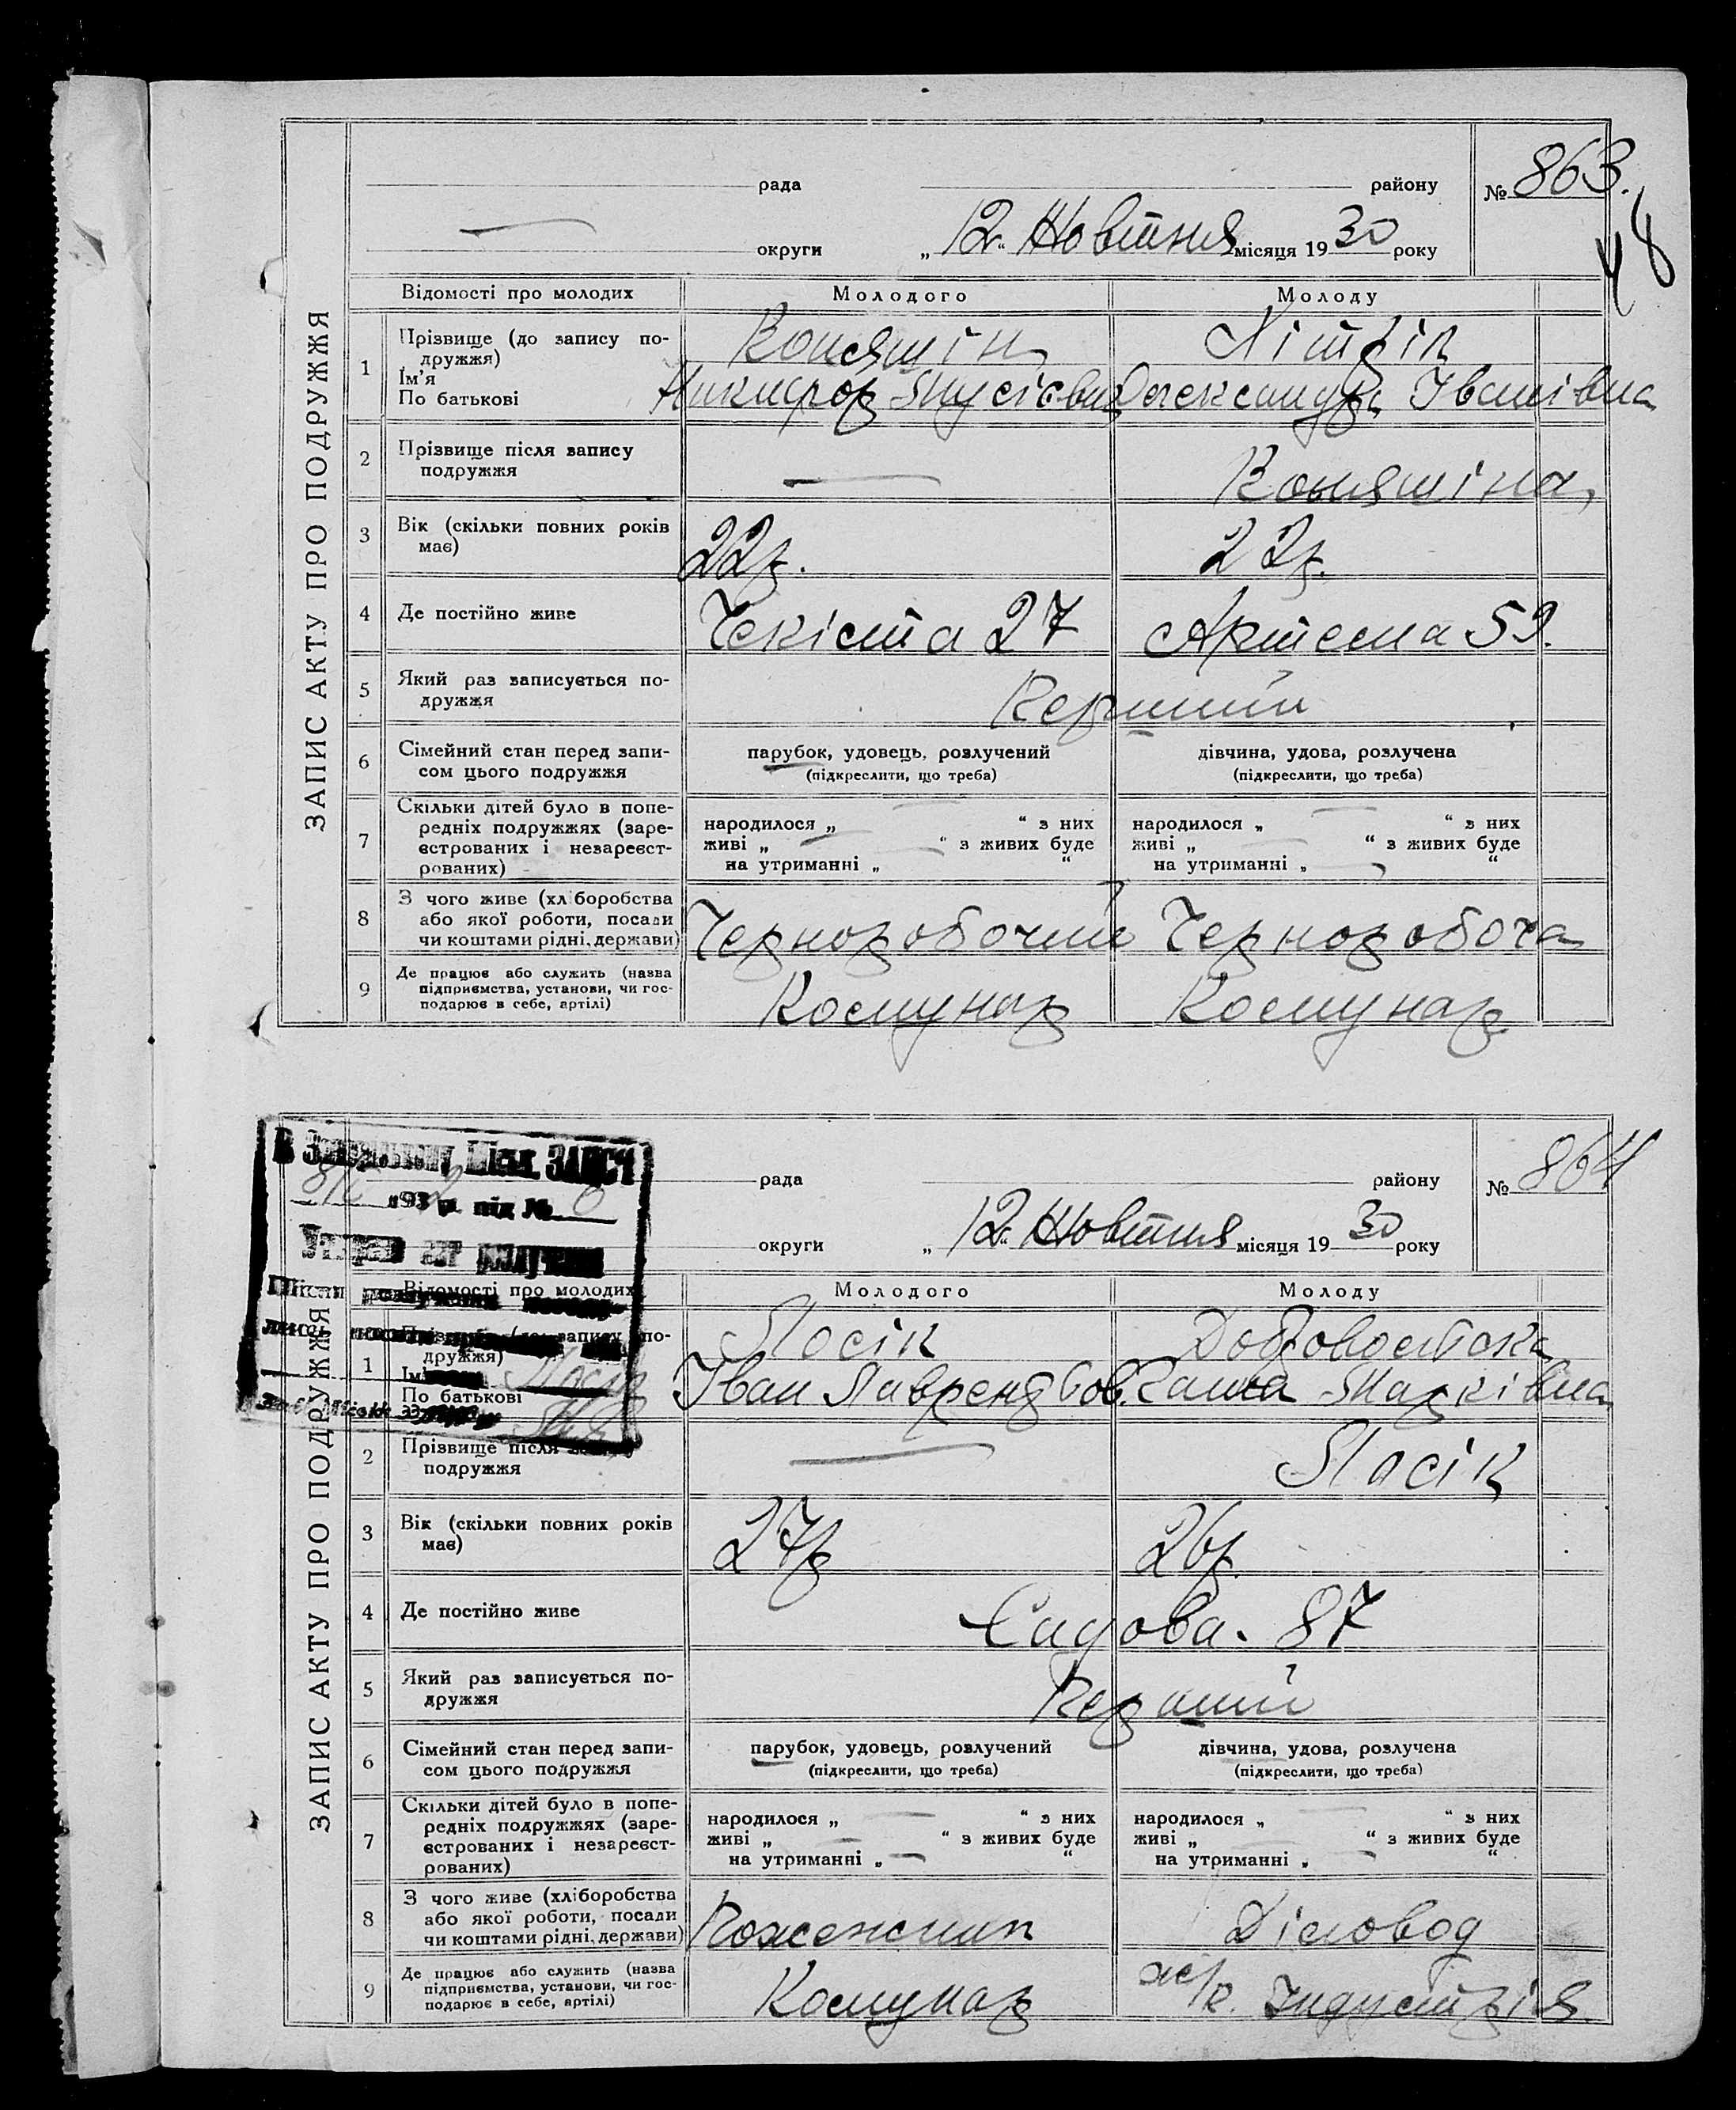 ЗАПИС АКТУ ПРО ПОДРУЖЖЯ
рада району № 863.
48
округи „12“ Жовтня місяця 1930 року
Відомості про молодих Молодого Молоду
1 Прізвище (до запису подружжя)
Ім'я
По батькові
Никифор Олександра Іванівна
2 Прізвище після запису
подружжя
3 Вік (скільки повних років
має)
22р. 22р.
4 Де постійно живе Чекіста 27 Артема 59.
5 Який раз записується по-
дружжя
Перший
6 Сімейний стан перед запи-
сом цього подружжя
парубок, удовець, розлучений дівчина, удова, розлучена
(підкреслити, що треба) (підкреслити, що треба)
7 Скільки дітей було в попе-
редніх подружжях (заре-
єстрованих і незареєст-
рованих)
народилося „ “ з них народилося „ “ з них
живі „ “ з живих буде живі „ “ з живих буде
на утриманні „ “ на утриманні „ “
8 З чого живе (хліборобства
або якої роботи, посади
чи коштами рідні, держави)
Черноробочий Черноробота
9 Де працює або служить (назва
підприємства, установи, чи гос-
подарює в себе, артілі)
Комунар Комунар
ЗАПИС АКТУ ПРО ПОДРУЖЖЯ
рада району № 864
округи „12“ Жовтня місяця 1930 року
ЗАГСІ
193 р. під №
Відомості про молодих Молодого Молоду
1 Прізвище (до запису по-
дружжя)
По батькові
Лосік
Іван Марківна
2 Прізвище після
подружжя
Лосік
3 Вік (скільки повних років
має)
27р 26р.
4 Де постійно живе Садова. 87
5 Який раз записується по-
дружжя
Перший
6 Сімейний стан перед запи-
сом цього подружжя
парубок, удовець, розлучений дівчина, удова, розлучена
(підкреслити, що треба) (підкреслити, що треба)
7 Скільки дітей було в попе-
редніх подружжях (заре-
єстрованих і незареєст-
рованих)
народилося „ “ з них народилося „ “ з них
живі „ “ з живих буде живі „ “ з живих буде
на утриманні „ “ на утриманні „ “
8 З чого живе (хліборобства
або якої роботи, посади
чи коштами рідні, держави)
Пожежник Діловод
9 Де працює або служить (назва
підприємства, установи, чи гос-
подарює в себе, артілі)
Комунар ж/к. Індустрія